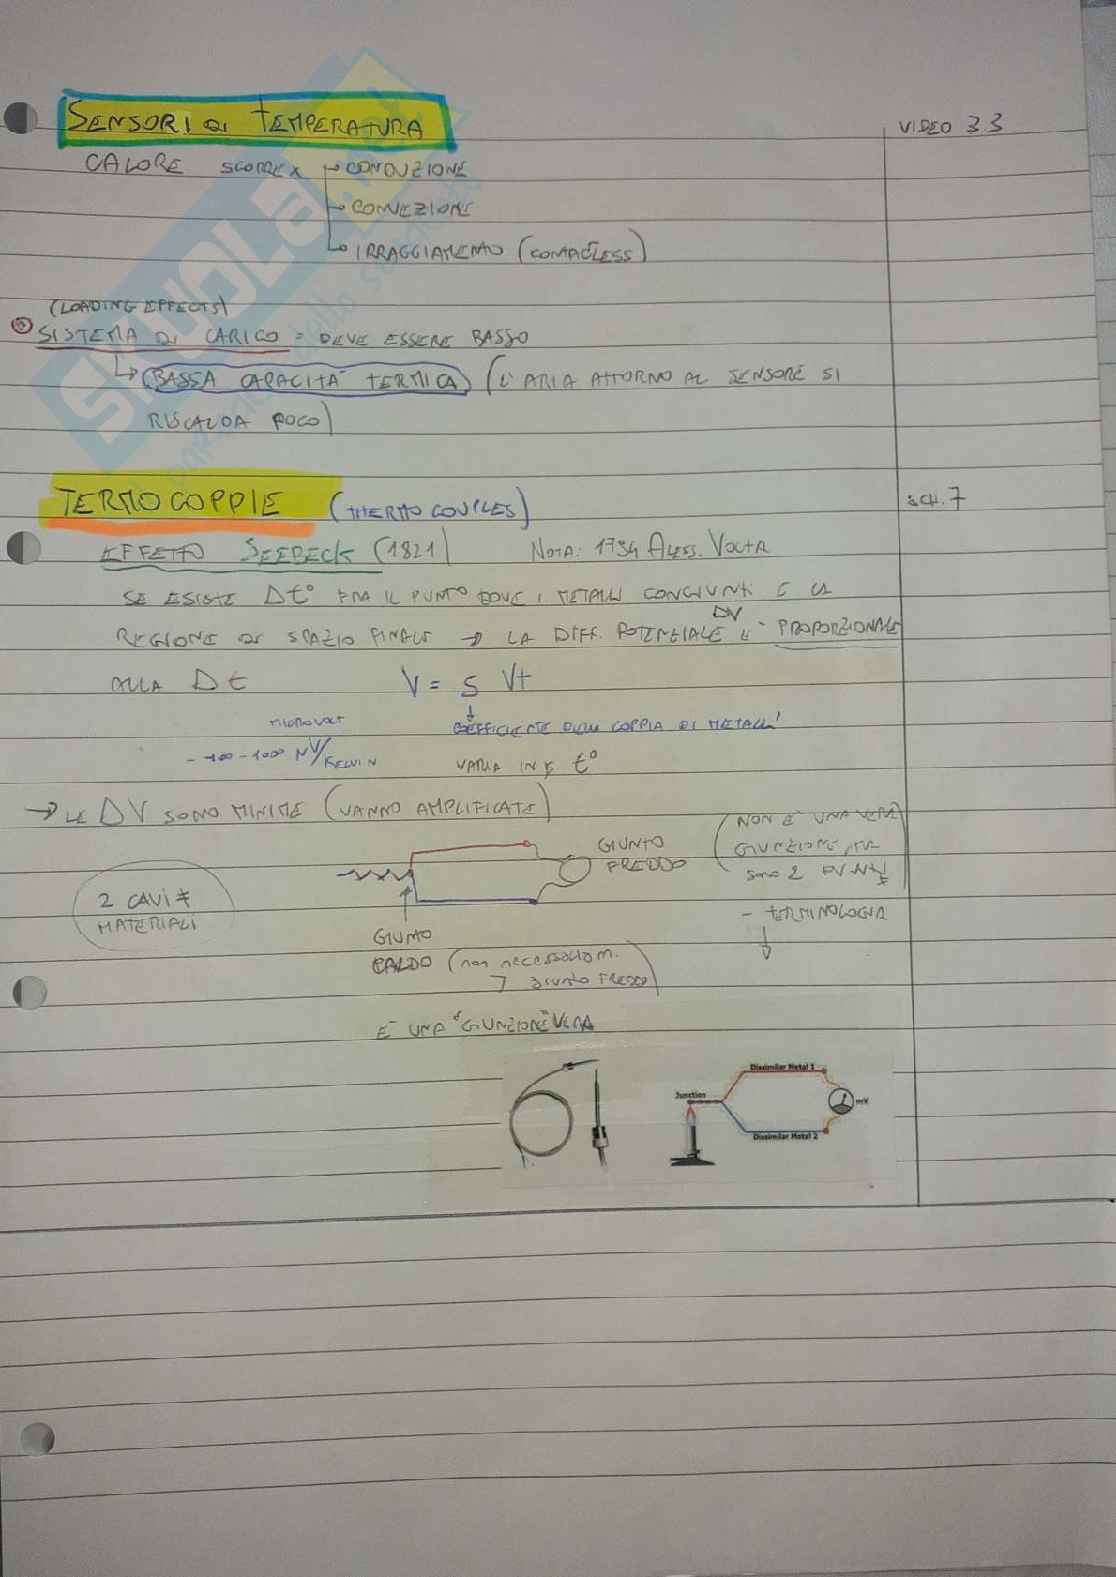 SENSORI DI TEMPERATURA
VIDEO 33
CALORE SCORRE X → CONDUZIONE
→ CONVEZIONE
→ IRRAGGIAMENTO (CONTACTLESS)
(LOADING EFFECTS)
SISTEMA DI CARICO = DEVE ESSERE BASSO
↳ BASSA CAPACITÀ TERMICA (L'ARIA ATTORNO AL SENSORE SI
RISCALDA POCO)
TERMOCOPPIE (THERMOCOUPLES)
SCH. 7
EFFETTO SEEBECK (1821) NOTA: 1794 ALESS. VOLTA
SE ESISTE Δt° FRA IL PUNTO DOVE I METALLI CONGIUNTI E LA
REGIONE DI SPAZIO FINALE → LA DIFF. POTENZIALE ΔV È PROPORZIONALE
ALLA Δt V = S ∇t
COEFFICIENTE DELLA COPPIA DI METALLI
MICROVOLT
-100 - 1000 μV/KELVIN
VARIA IN t°
→ LE ΔV SONO MINIME (VANNO AMPLIFICATE)
2 CAVI ≠
MATERIALI
GIUNTO
FREDDO
(NON È UNA VERA
GIUNZIONE, MA
SONO 2 PUNTI ≠)
- TERMINOLOGIA
↓
GIUNTO
CALDO (non necessariam.
> giunto freddo)
È UNA "GIUNZIONE" VERA
Dissimilar Metal 1
Junction
mV
Dissimilar Metal 2
SKUOLA